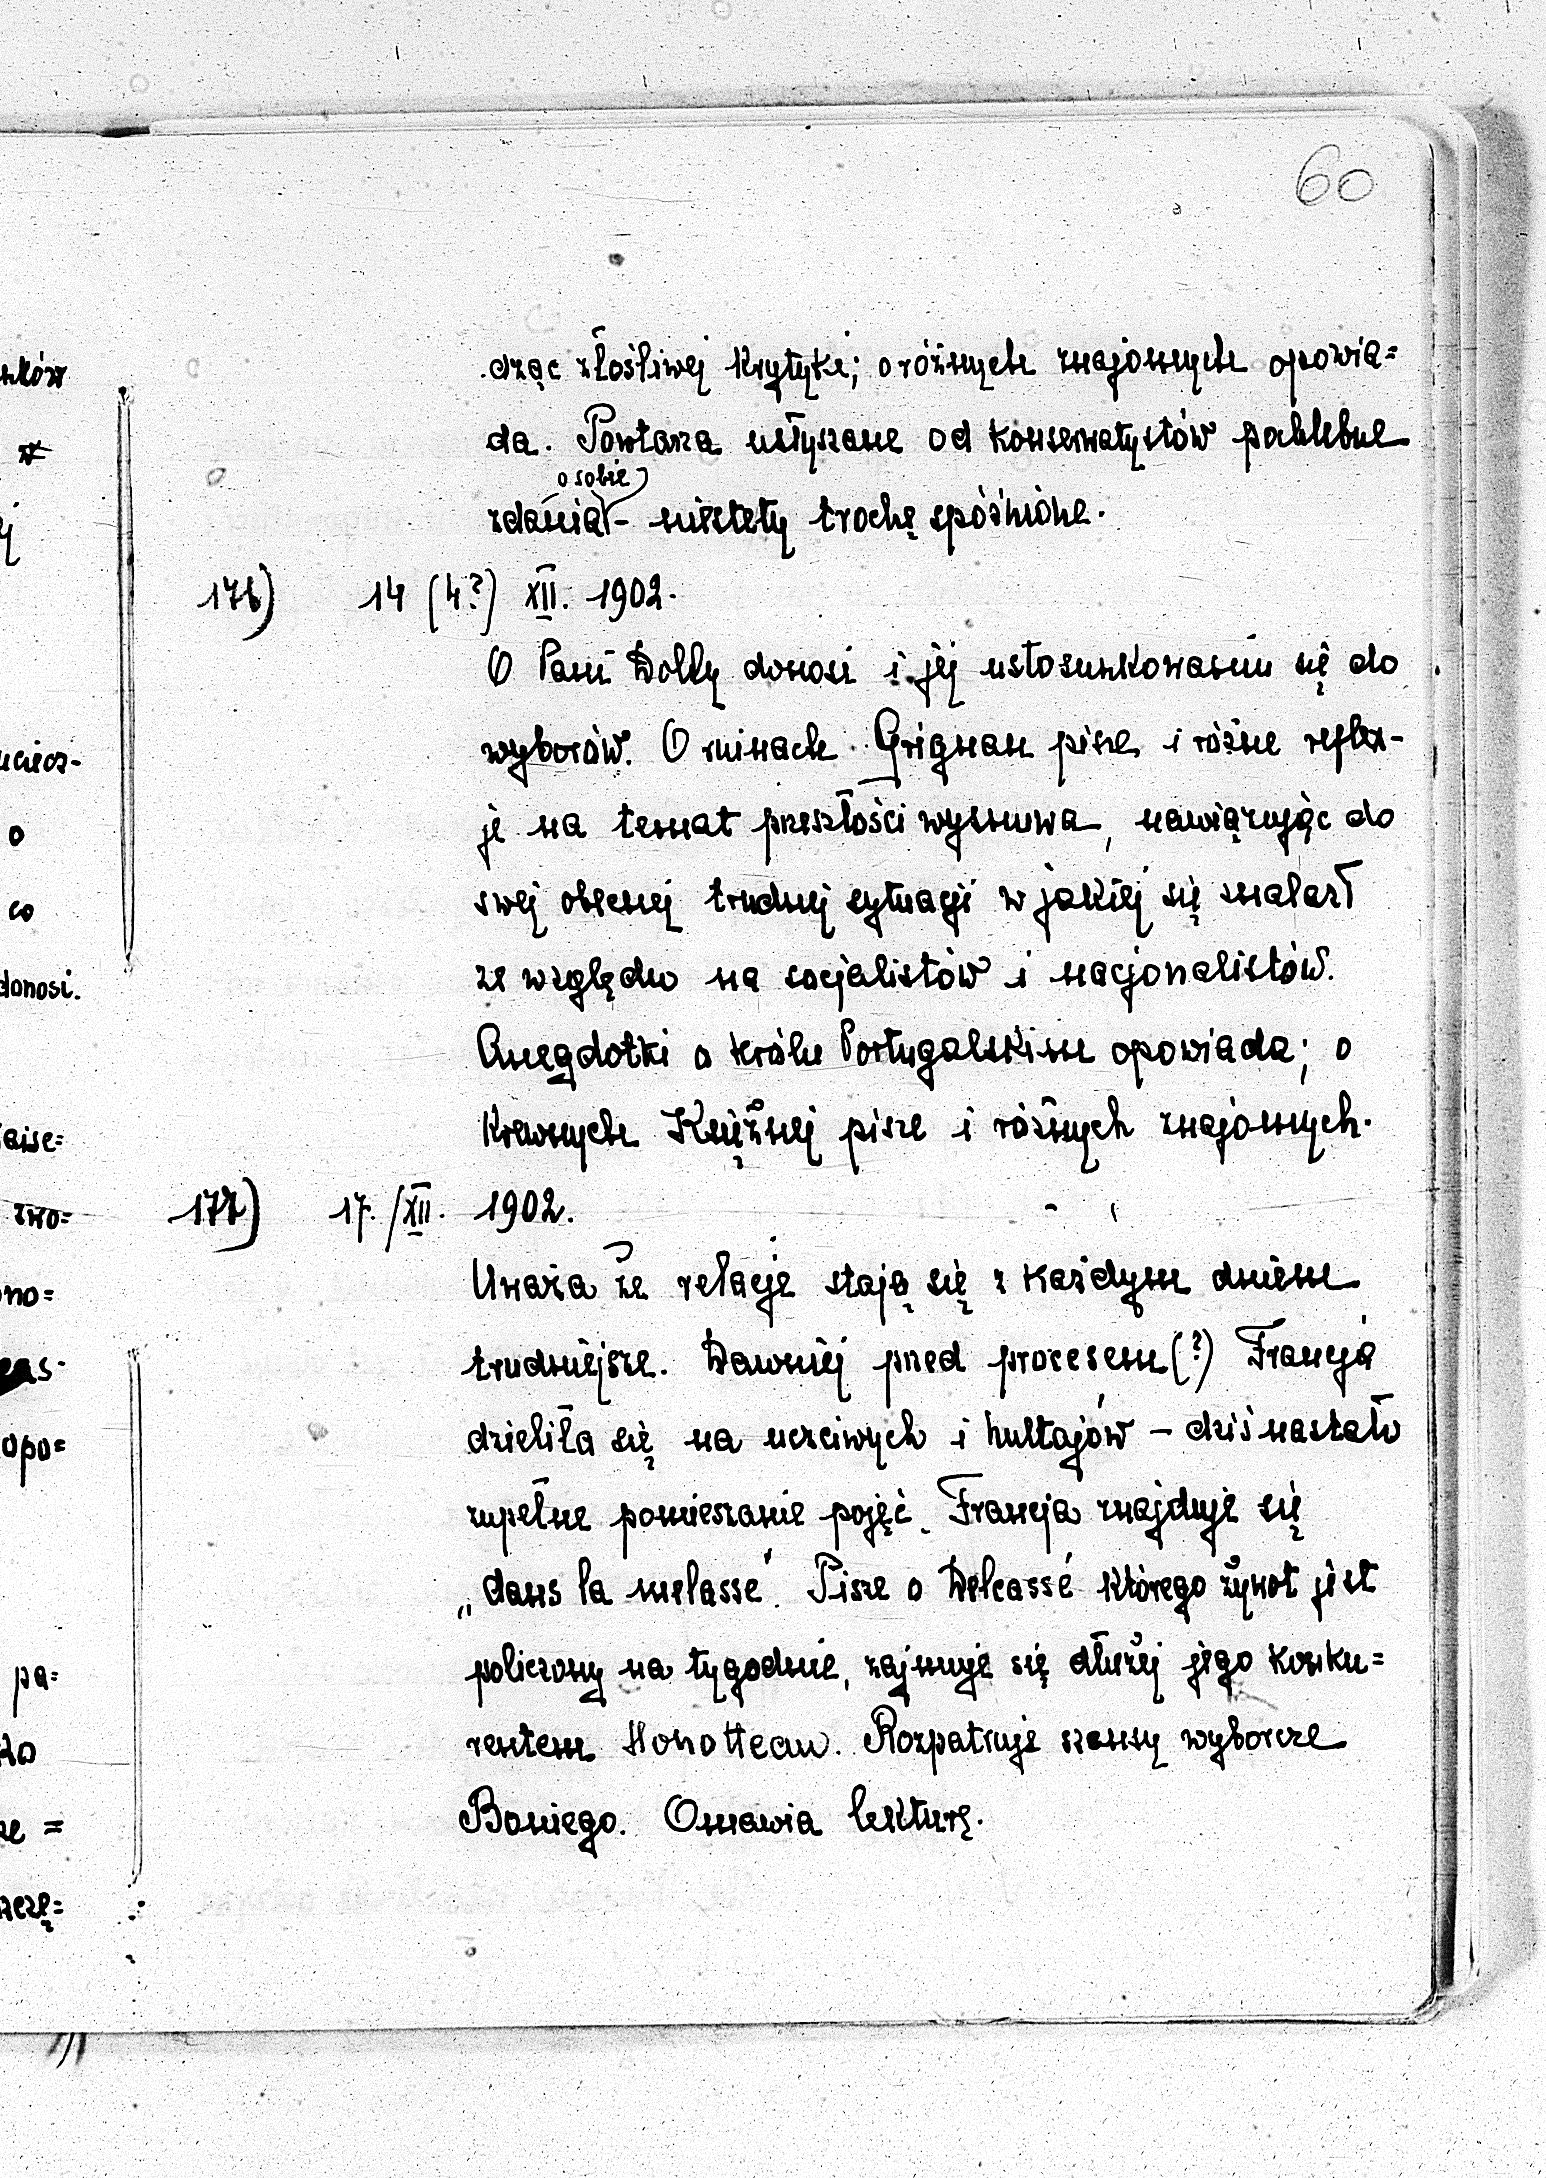 60
dząc złośliwej krytyki; o różnych znajomych opowia=
da. Powtarza usłyszane od konserwatystów pochlebne
o sobie
zdania - niestety trochę spóźnione.
176) 14 (4?) XII. 1902.
O Pani Dolly donosi i jej ustosunkowaniu się do
wyborów. O ruinach Grignan pisze i różne reflek-
je na temat przeszłości wysnuwa, nawiązując do
swej obecnej trudnej sytuacji w jakiej się znalazł
ze względu na socjalistów i nacjonalistów.
Anegdotki o królu Portugalskim opowiada; o
Krewnych Księżnej pisze i różnych znajomych.
177) 17./XII. 1902.
Uważa że relacje stają się z każdym dniem
trudniejsze. Dawniej przed procesem (?) Francja
dzieliła się na uczciwych i hultajów - dziś nastało
zupełne pomieszanie pojęć. Francja znajduje się
„dans la melasse". Pisze o Delcassé którego żywot jest
policzony na tygodnie, zajmuje się dłużej jego konku=
rentem Honotteau. Rozpatruje szansy wyborcze
Boniego. Omawia lekturę.
nków
uciecz-
o
co
donosi.
aise=
zwo=
ono=
eas.
opo=
pa=